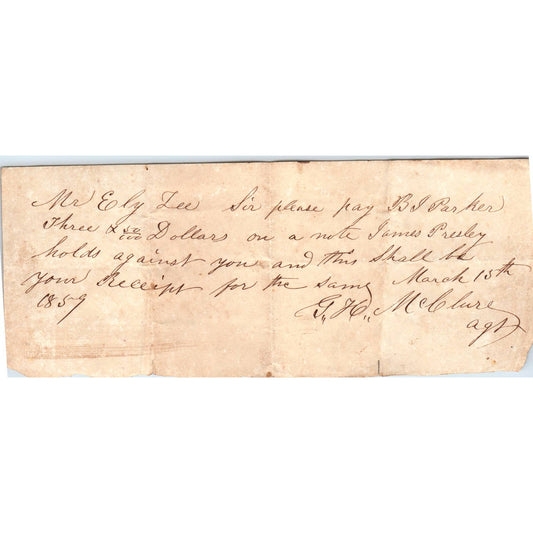 Mr Ely Lee Sir please pay B J Parker
Three & 50/100 Dollars on a note James Presley
holds against you and this Shall be
your Receipt for the same March 15th
1859
G. H. McClure
agt